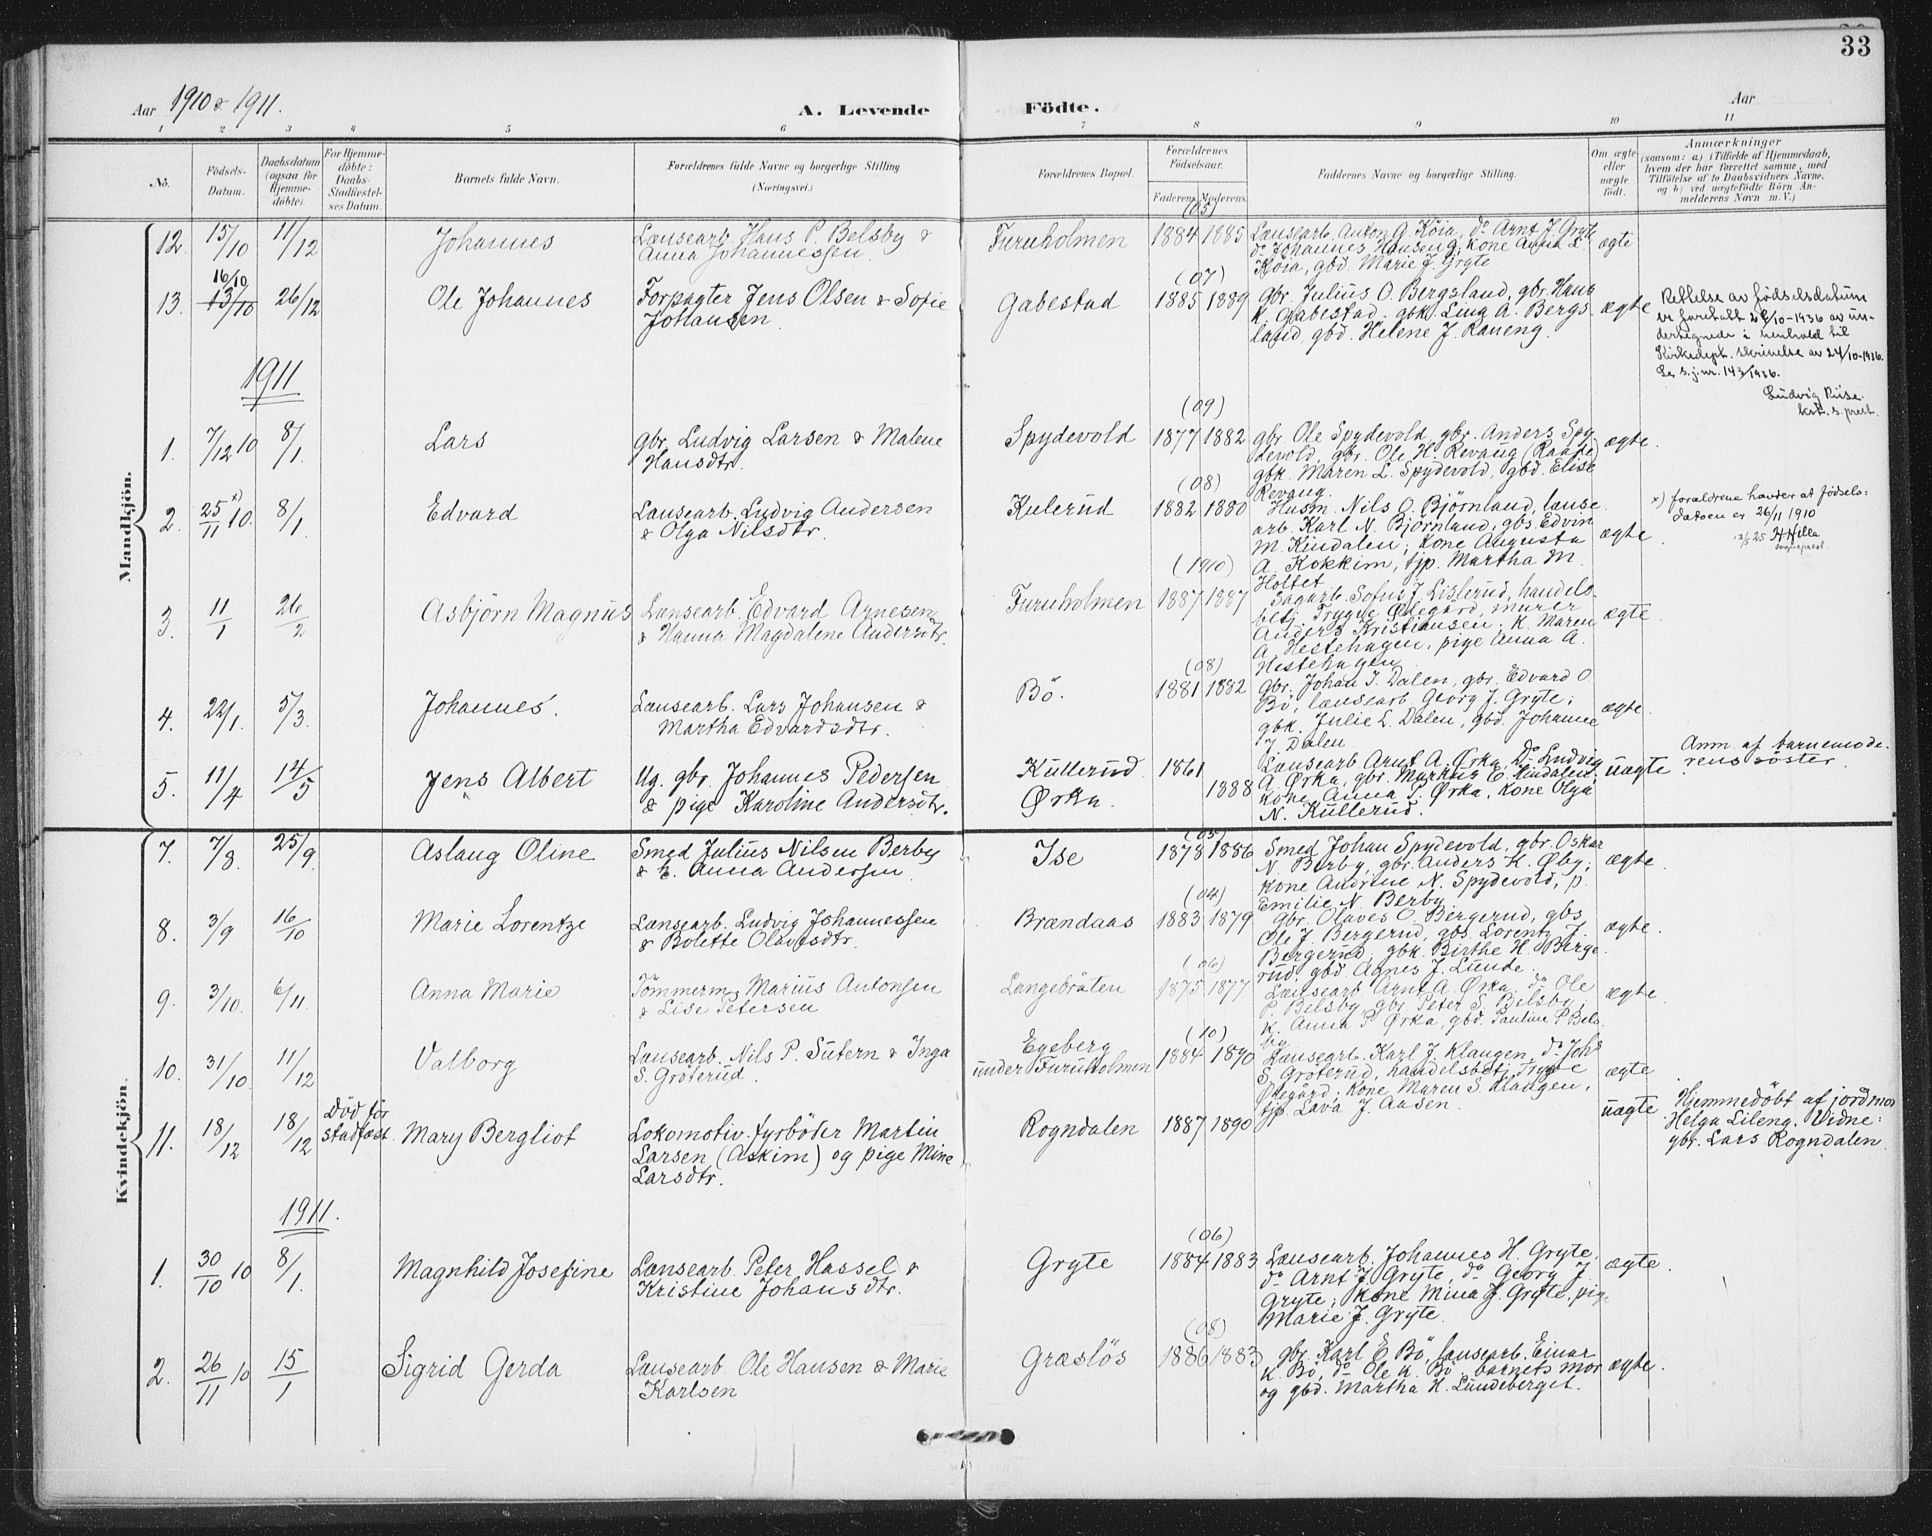 33
Aar 1910 & 1911. A. Levende Födte. Aar
1 2 3 4 5 6 7 8 9 10 11
No.
Födsels-Datum.
Daabsdatum (ogsaa for Hjemme-döbte).
For Hjemme-döbte: Daabs-Stadfæstel-ses Datum.
Barnets fulde Navn.
Forældrenes fulde Navne og borgerlige Stilling (Næringsvei.)
Forældrenes Bopæl.
Forældrenes Födselsaar.
Faderens Moderens
Faddernes Navne og borgerlige Stilling.
Om ægte eller uægte födt.
Anmærkninger
(saasom: a) i Tilfælde af Hjemmedaab,
hvem der har forrettet samme, med
Tilföielse af to Daabsvidners Navne,
og b) ved uægtefödte Börn An-
melderens Navn m. V.)
Mandkjön.
12. 15/10 11/12 Johannes
Lænsearb. Hans P. Belsby &
Anna Johannessen.
Furuholmen (05) 1884 1885
Lænsearb. Anton G. Köia, do Arnt J. Gryte
do Johannes Hansen G, kone Anna L.
Köia, gbd. Marie J. Gryte
ægte
13. 16/10 13/10 26/12 Ole Johannes
Forpagter Jens Olsen & Sofie
Johansen
Gabestad (07) 1885 1889
Gbr. Julius O. Bergsland, gbr. Hans
K. Gabestad, gbk. Lina A. Bergs
land, gbd. Helene J. Raneng.
ægte
Rettelse av fødselsdatum
er foretatt 28/10-1936 av un-
dertegnede i henhold til
Kirkedept. skrivelse av 24/10-1936.
Se s.j.nr. 143/1936.
Ludvig Riise.
kst. s.prest.
1911
1. 7/12 10 8/1 Lars
Gbr. Ludvig Larsen & Malene
Hansdtr.
Spydevold (09) 1877 1882
gbr. Ole Spydevold, gbr. Anders Spy
devold, gbr. Ole H. Revaug (Raade)
gbk. Maren L. Spydevold, gbd. Elise
Revaug.
ægte.
2. 25/11 10. x) 8/1 Edvard
Lænsearb. Ludvig Andersen
& Olga Nilsdtr.
Kulerud (08) 1882 1880
Husm. Nils O. Björnland, lænse
arb. Karl N. Björnland, gbs. Edvin
M. Kindalen; kone Augusta
A. Kokkim, tjp. Martha M.
Holtet
ægte
x) forældrene hævder at fødsels-
datoen er 26/11 1910
12/5 25 H Hilla
sogneprest.
3. 11/1 26/2 Asbjörn Magnus
Lænsearb. Edvard Arnesen
& Hanna Magdalene Andersdtr.
Furuholmen (1910) 1887 1887
Sagarb. Sofus J. Lislerud, handels-
betj. Trygve Ødegård, murer
Anders Kristiansen; k. Maren
A. Hestehagen, pige Anna A.
Hestehagen
ægte.
4. 22/1. 5/3. Johannes.
Lænsearb. Lars Johansen &
Martha Edvardsdtr.
Bö. (08) 1881 1882
Gbr. Johan J. Dalen, gbr. Edvard O
Bö, lænsearb. Georg J. Gryte;
gbk. Julie L. Dalen, gbd. Johanne
J. Dalen
ægte.
5. 11/4 14/5 Jens Albert
Ug. gbr. Johannes Pedersen
& pige Karoline Andersdtr.
Kullerud 1861
Ørka. 1888
Lænsearb Arnt A. Ørka, Do Ludvig
A. Ørka, gbr. Markus E. Kindalen;
kone Anna P. Ørka, kone Olga
N. Kullerud.
uægte
Anm. af barnemode-
rens söster.
Kvindekjön.
7. 7/8. 25/9. Aslaug Oline
Smed Julius Nilsen Berby
& E. Anna Andersen
Ise (05) 1878 1886
Smed Johan Spydevold, gbr. Oskar
N. Berby, gbr. Anders H. Øby;
kone Andrine N. Spydevold, p.
Emilie N. Berby
ægte.
8. 3/9 16/10 Marie Lorentze
Lænsearb. Ludvig Johannessen
& Bolette Olavesdtr.
Brændaas (04) 1883 1879
Gbr. Olaves O. Bergerud, gbs
Ole J. Bergerud, gbs. Lorentz J.
Bergerud; gbk. Birthe H. Berge
rud, gbd. Agnes J. Lunde.
ægte.
9. 3/10. 6/11 Anna Marie
Tömmerm. Marius Antonsen
& Lise Petersen
Langebråten (06) 1875 1877
Lænsearb Arnt A. Ørka, do Ole
P. Belsby, gbr. Peter S. Belsby;
k. Anna P. Ørka, gbd. Pauline P. Bels
by
ægte.
10. 31/10. 11/12 Valborg
Lænsearb. Nils P. Sutern & Inga
S. Gröterud.
Egeberg
under Furuholmen (10) 1884 1890
Lænsearb. Karl J. Klaugen, do Johs
S. Gröterud, handelsbetj. Trygve
Ødegård; kone Maren S. Klaugen,
tjp. Lava J. Aasen.
ægte
11. 18/12 18/12 Död för stadfæst.
Mary Bergliot
Lokomotiv-fyrböder Martin
Larsen (Askim) og pige Mine
Larsdtr.
Rogndalen 1887 1890
uægte
Hjemmedöbt af jordmor
Helga Lileng. Vidne:
gbr. Lars Rogndalen
1911.
1. 30/10 10 8/1. Magnhild Josefine
Lænsearb. Peter Hassel &
Kristine Johansdtr.
Gryte (06) 1884 1883
Lænsearb. Johannes H. Gryte,
do Arnt J. Gryte, do Georg J.
Gryte; kone Mina J. Gryte, pig
Marie J. Gryte
ægte.
2. 26/11 10 15/1 Sigrid Gerda
Lænsearb Ole Hansen & Marie
Karlsen
Græslös (08) 1886 1883
gbr. Karl E Bö, lænsearb. Einar
K. Bö, do Ole K. Bö, barnets mor
og gbd. Martha H. Lundeberget.
ægte.